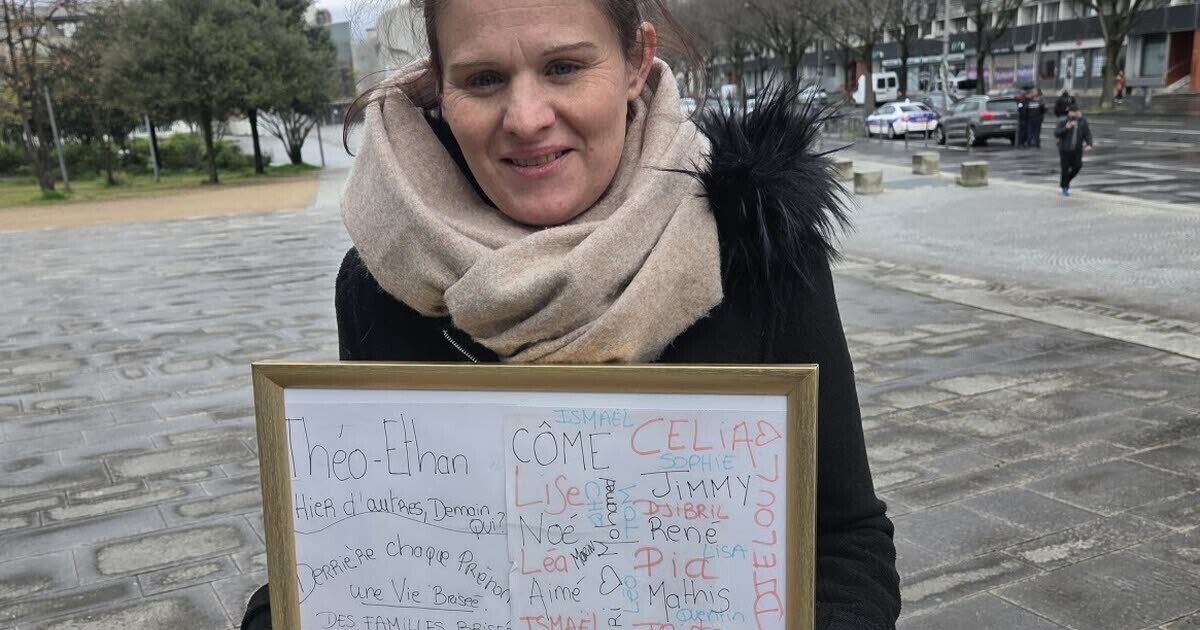 Théo-Ethan
Hier d'autres, Demain qui?
Derrière chaque Prénom
une Vie Brisée
DES FAMILLES BRISÉ
ISMAËL
CÔME
CELIA
SOPHIE
Lise
JIMMY
Mohamed
DJIBRIL
Noé
René
LISA
Léa
Marin
Pia
Aimé
Léo
Mathis
Quentin
ISMAEL
DJELOUL